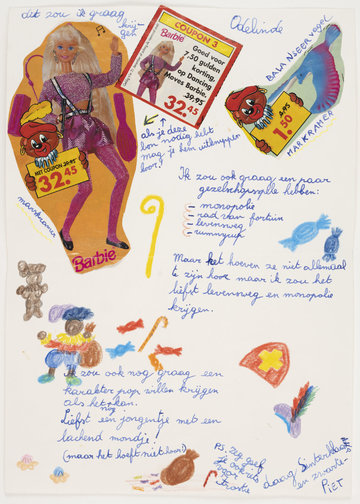 dit zou ik graag
krijgen
Odelinde
COUPON 3
Barbie
Goed voor
7.50 gulden
korting,
op Dancing
Moves Barbie.
39,95
32.45
BALANSEER vogel
6.95
1.50
MARKRAMER
als je deze
bon nodig hebt
mag je hem uitknippen
hoor!
MET COUPON 39,95
32.45
marskramer
Barbie
Ik zou ook graag een paar
gezelschapsspelle hebben:
- monopolie
- rad van fortuin
- levensweg
- rummycup
Maar het hoeven ze niet allemaal
te zijn hoor maar ik zou het
liefst levensweg en monopolie
krijgen.
zou ook nog graag een
karakter pop willen krijgen
als het kan.
nog:
Liefst een jongentje met een
lachend mondje!
(maar het hoeft niet hoor)
P.S. zeg geef
je ook iets
voor
daag Sinterklaas
en zwarte-
PIET